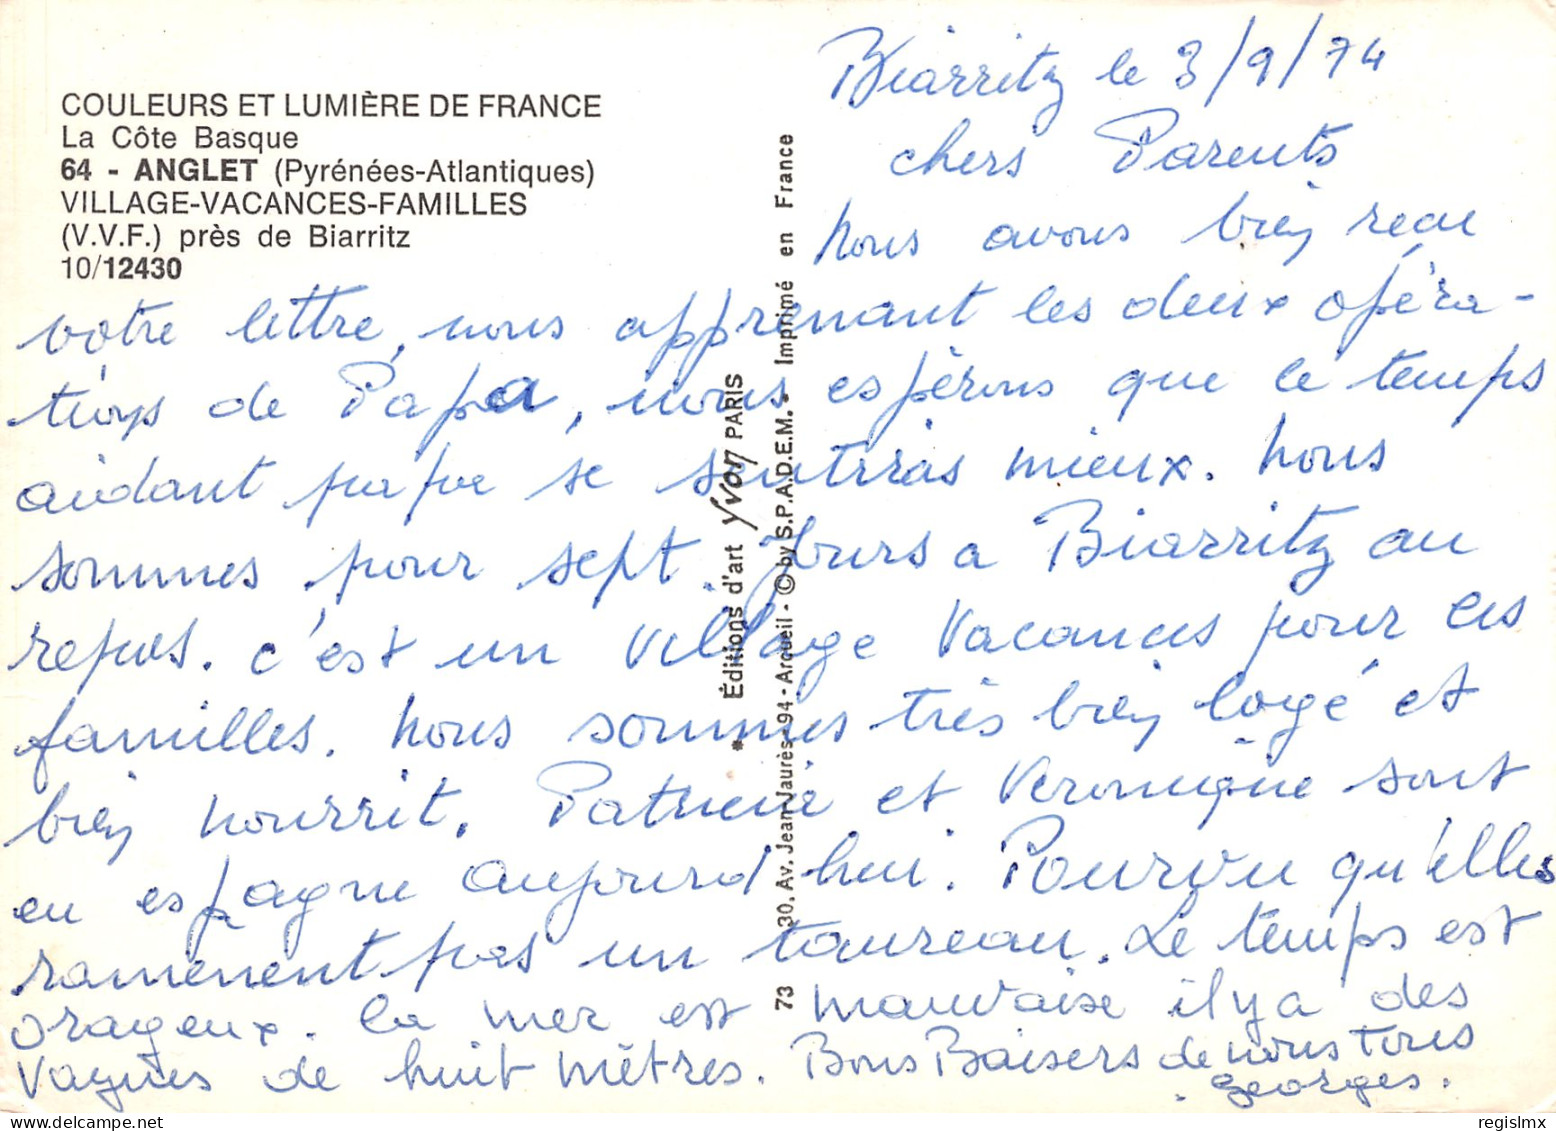 COULEURS ET LUMIÈRE DE FRANCE
La Côte Basque
64 - ANGLET (Pyrénées-Atlantiques)
VILLAGE-VACANCES-FAMILLES
(V.V.F.) près de Biarritz
10/12430
Biarritz le 3/9/74
chers Parents
Nous avons bien recu
votre lettre, nous apprenant les deux opéra-
tions de Papa, nous espérons que le temps
aidant papa se sentiras mieux. Nous
sommes pour sept jours a Biarritz au
repos. c'est un Village Vacances pour les
familles. Nous sommes très bien logé et
bien nourrit. Patricia et Veronique sont
en espagne aujourd hui. Pourvu qu'elles
ramenent pas un taureau. Le temps est
orageux. la mer est mauvaise il y a des
Vagues de huit mètres. Bons Baisers de nous Tous
Georges.
* Éditions d'art Yvon PARIS
73 30, Av. Jean-Jaurès - 94 - Arcueil - © by S.P.A.D.E.M. - Imprimé en France
regislmx